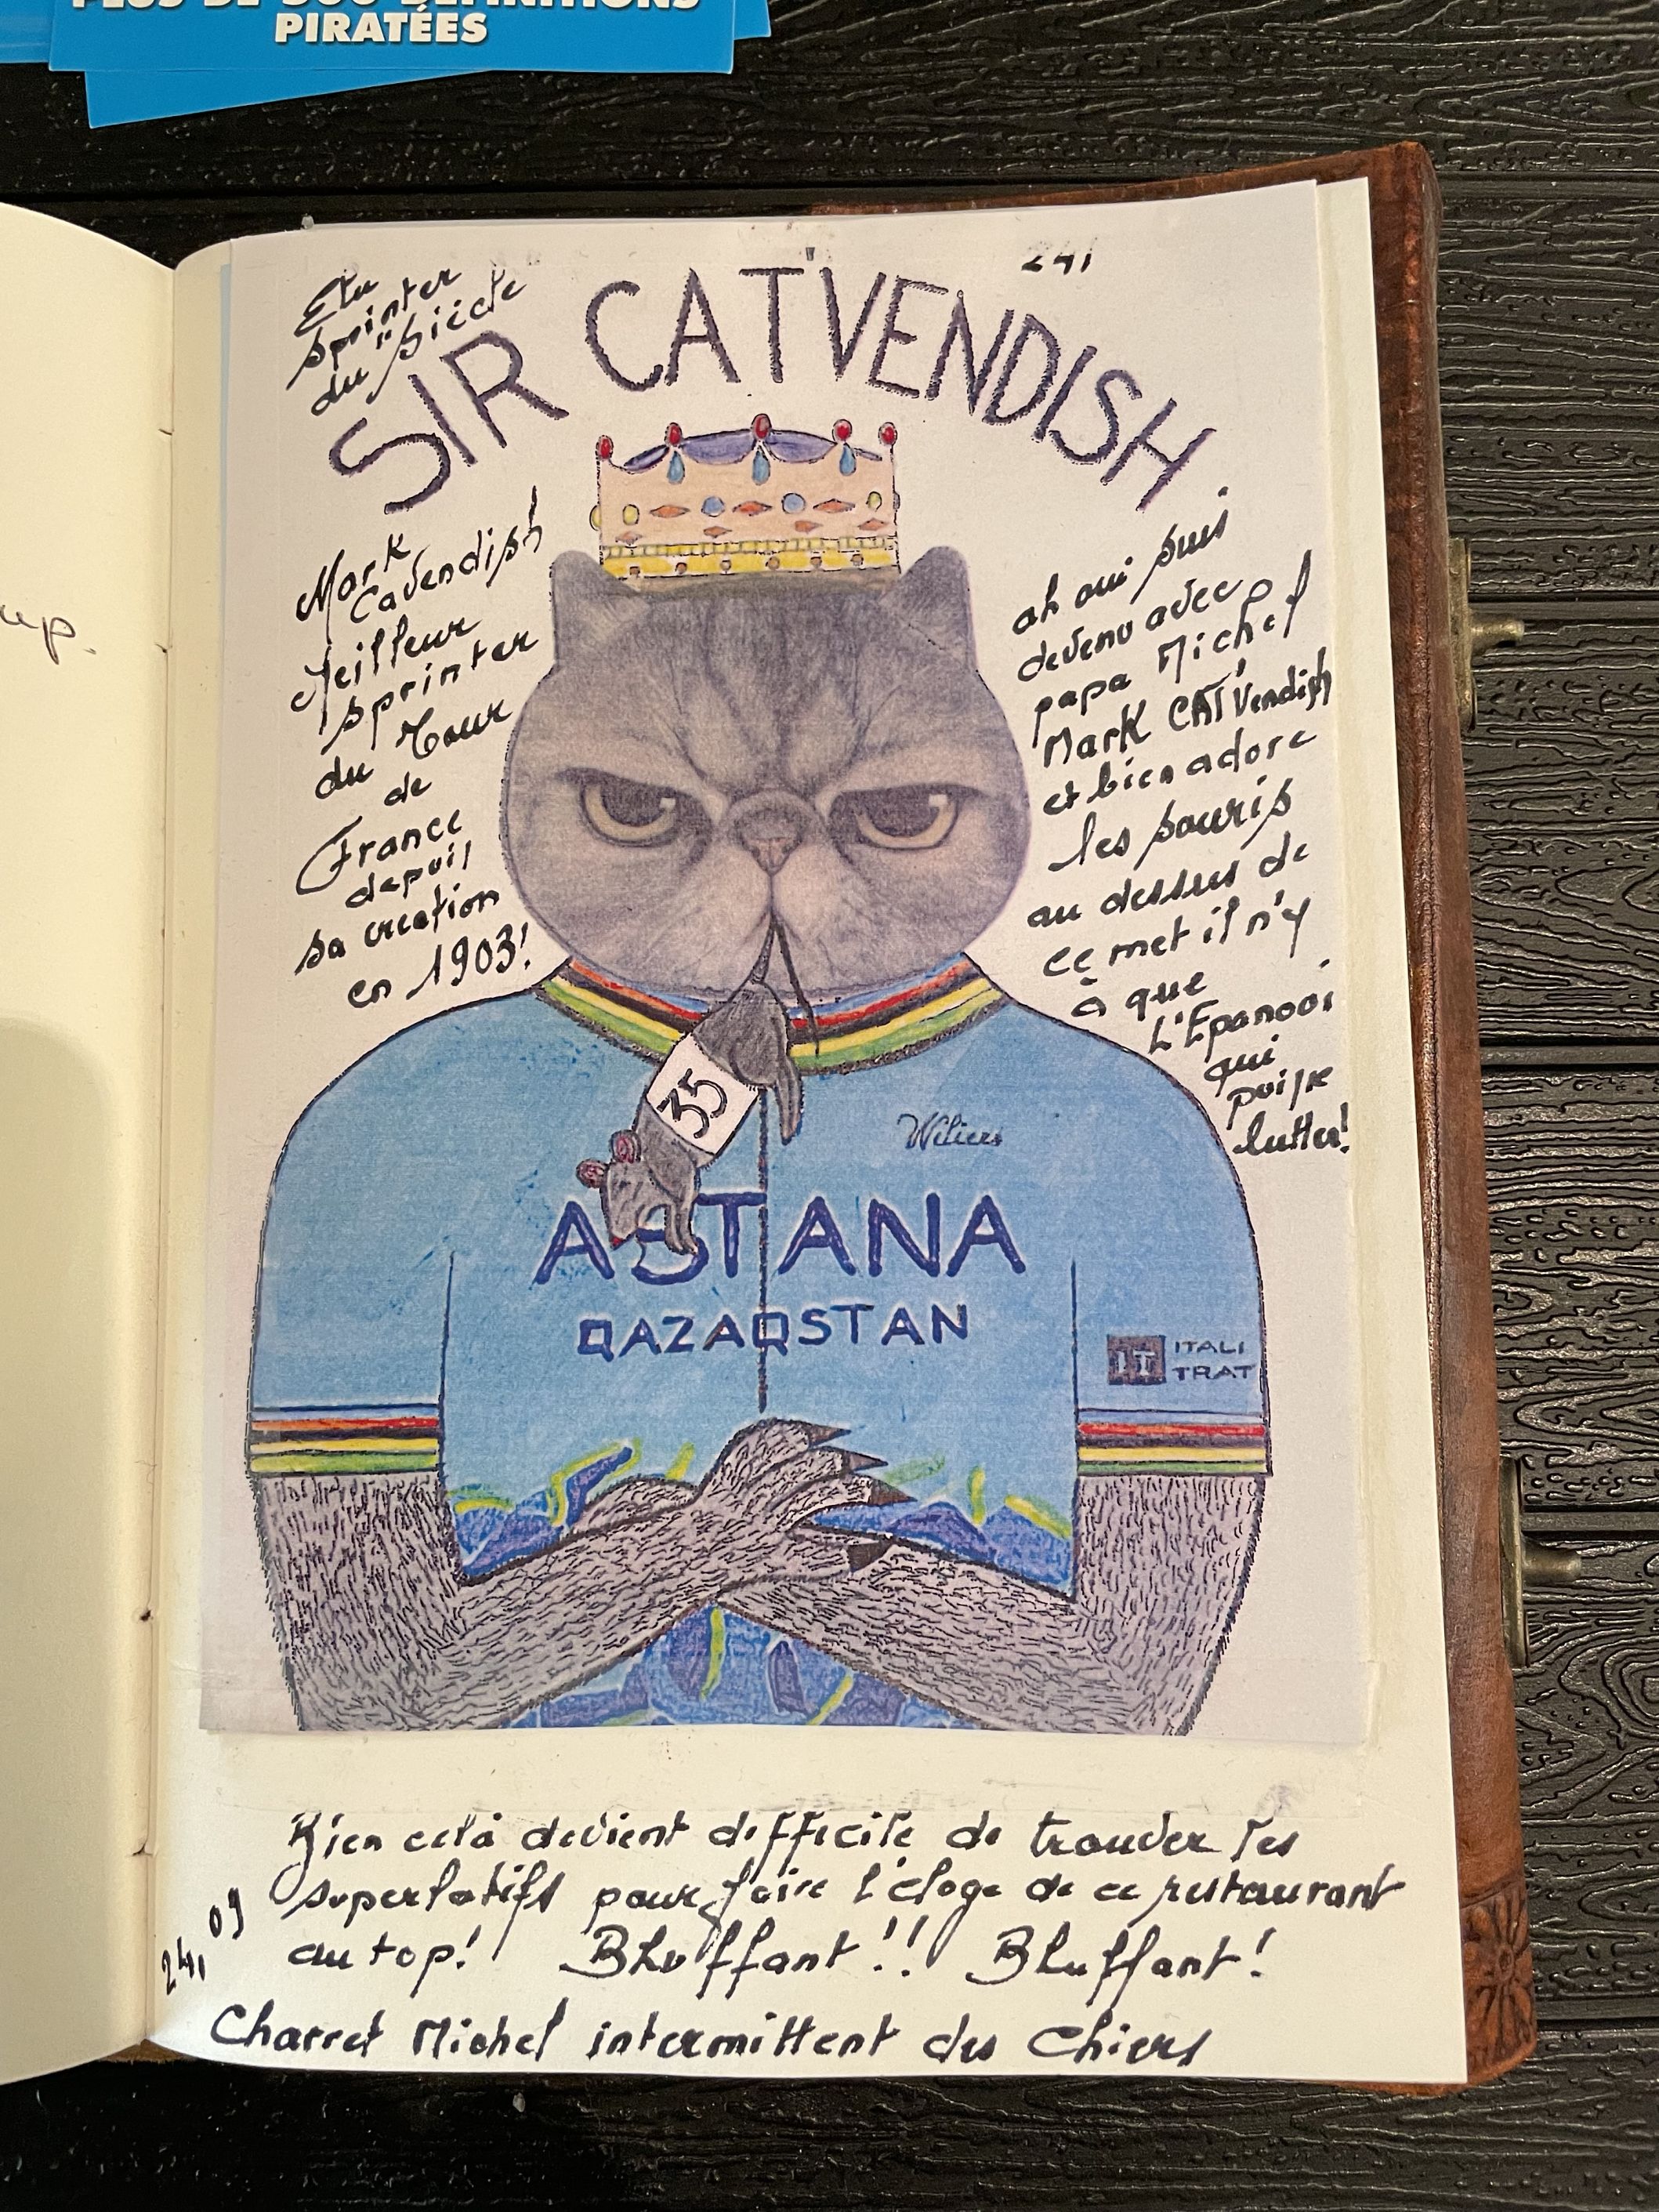 PLUS DE 500 DÉFINITIONS
PIRATÉES
up.
241
Elu
sprinter
du siècle
SIR CAT'VENDISH
Mark
Cavendish
Meilleur
sprinter
du Tour
de
France
depuis
sa création
en 1903!
ah oui suis
devenu avec
papa Michel
Mark CAT'Vendish
et bien adore
les souris
au dessus de
ce met il n'y
à que
L'Epanoui
qui
puisse
lutter!
35
Wilier
ASTANA
QAZAQSTAN
IT ITALI
TRAT
Bien celà devient difficile de trouver les
superlatifs pour faire l'éloge de ce restaurant
au top! Bluffant!! Bluffant!
24, 09
Charret Michel intermittent des Chiers